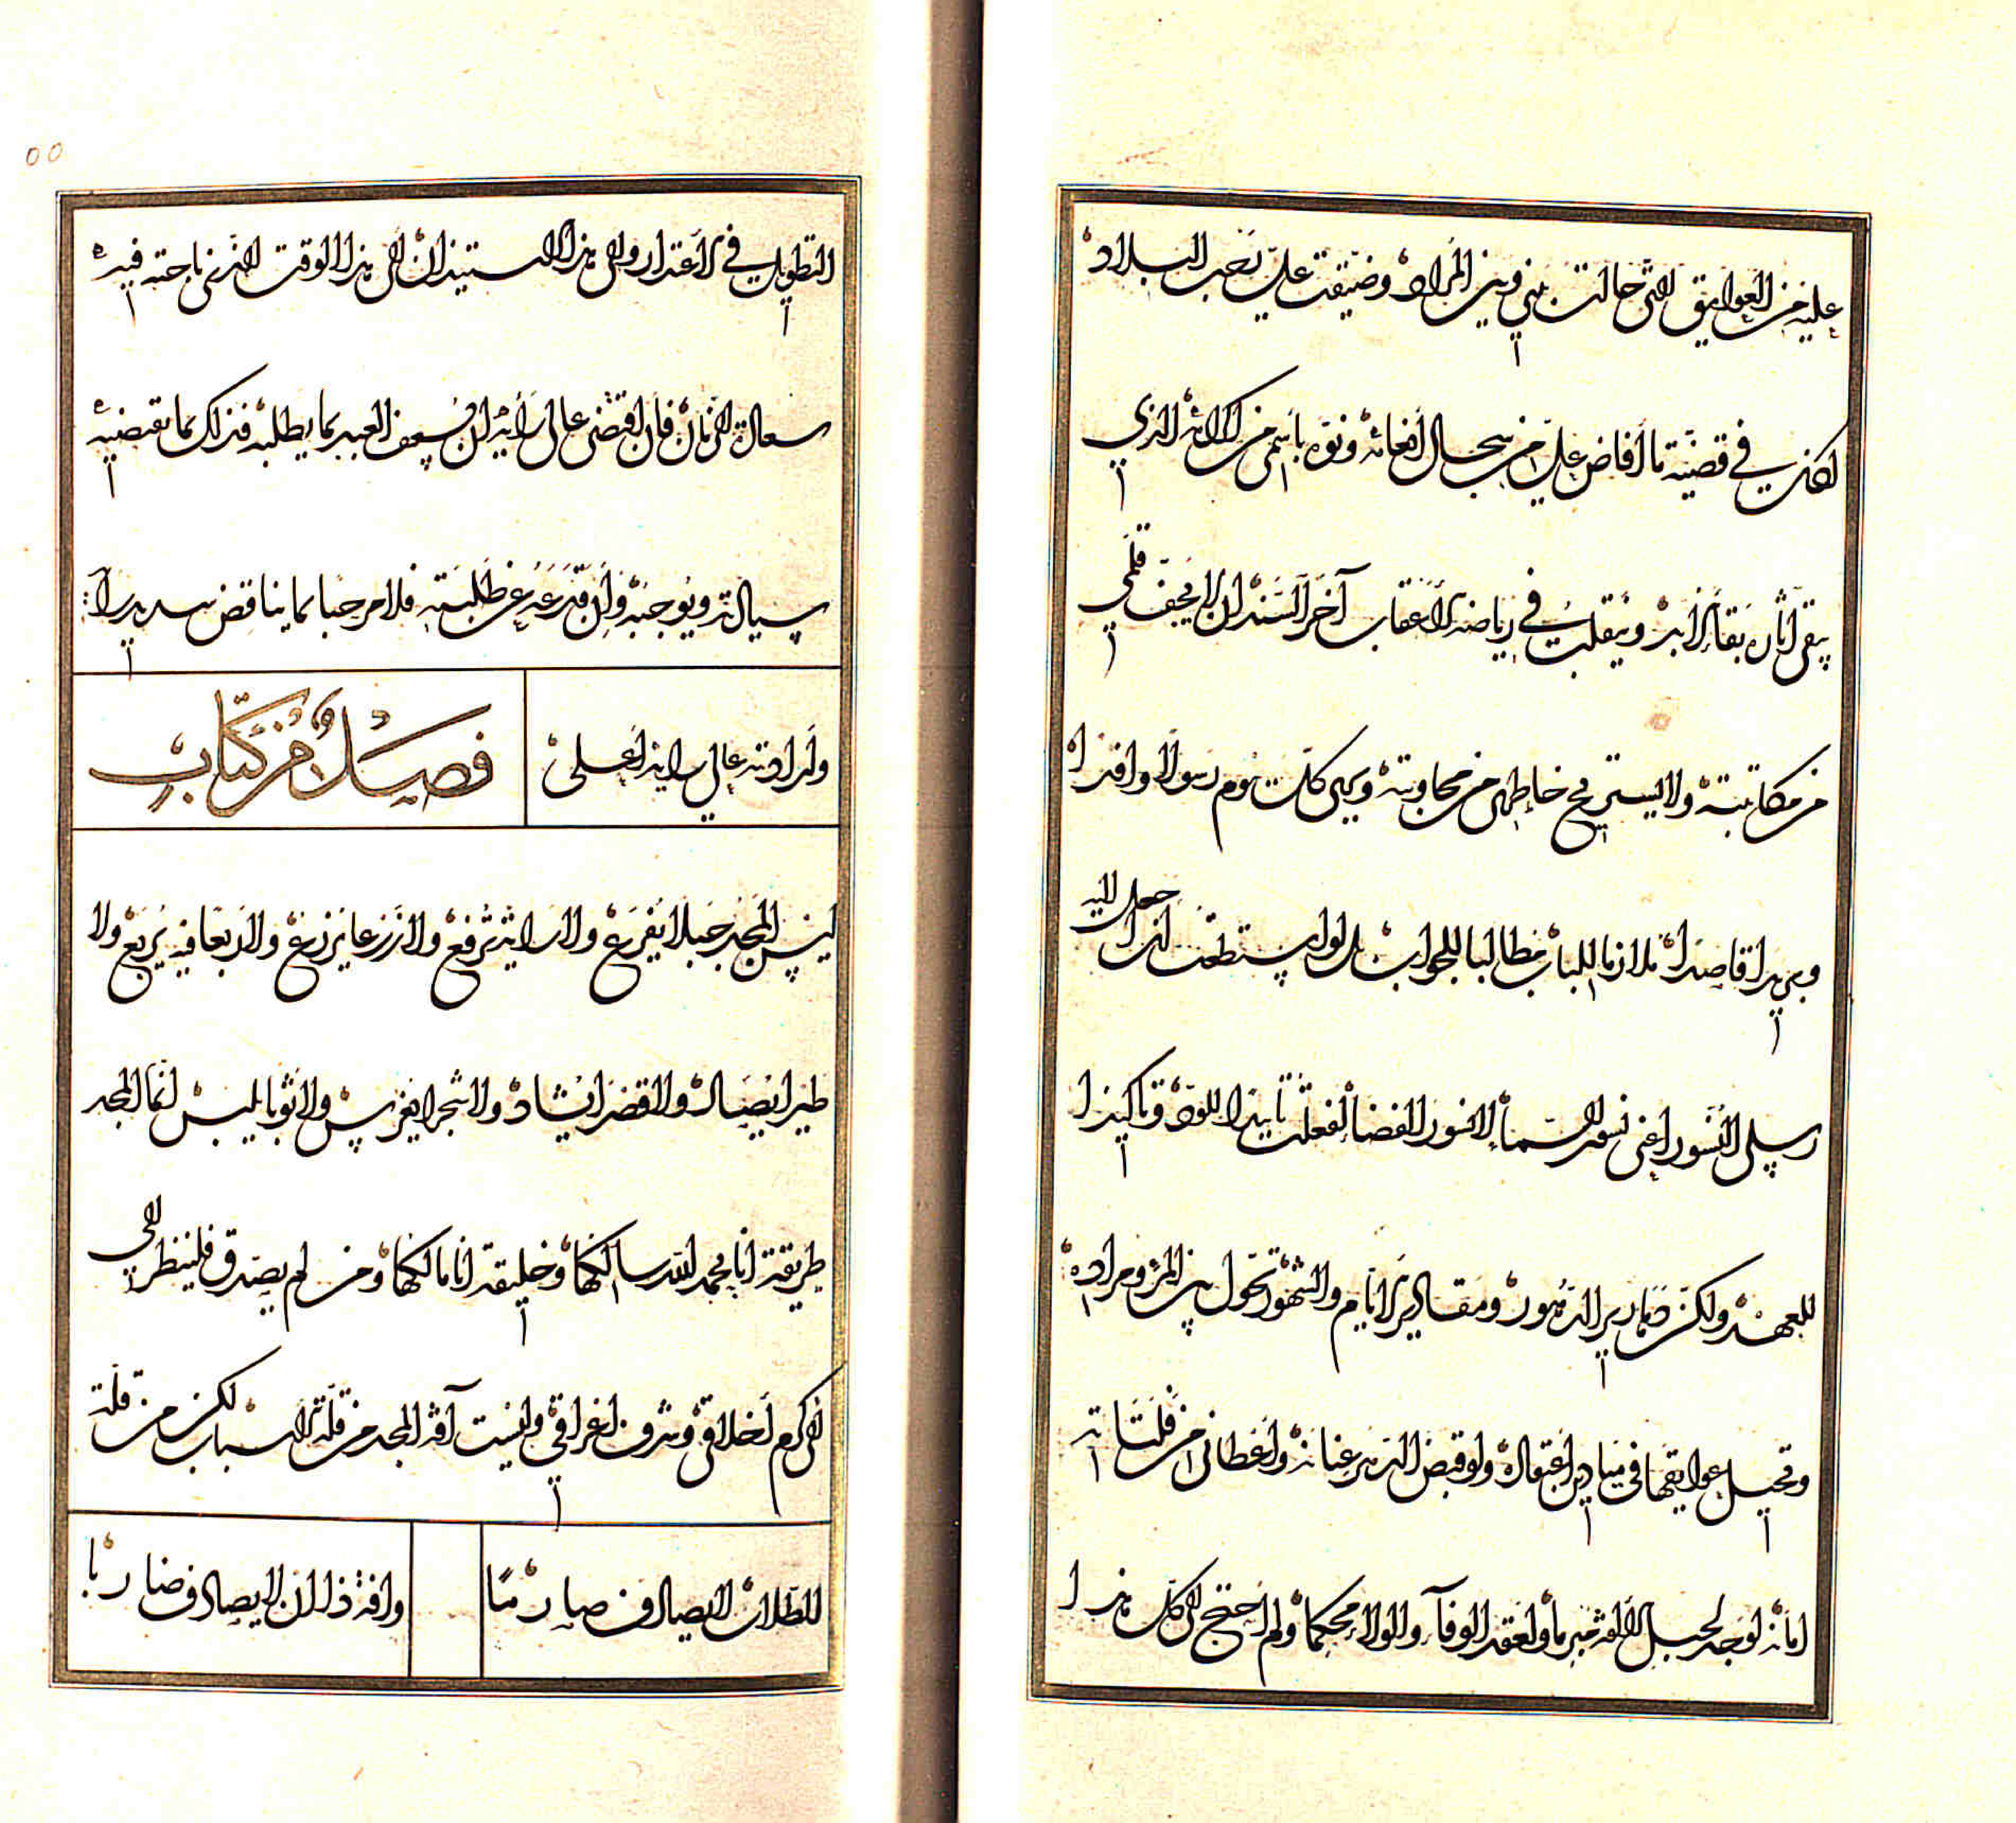 عليه من العوايق التي حالت بيني وبين المراد وضيقت علي رحب البلاد
لكان في قضية ما أفاض علي من سجال أنعامه ونوه باسمي من اكرامه الذي
يبقى اثاره بقاء الأبد ويتقلب في رياضه الأعقاب آخر المسند ان لا يجف قلمي
من مكاتبته ولا يستريح خاطري من مجاوبته ويرى كل يوم رسولا وافدا
وبريدا قاصدا ملازما للباب مطالبا للجواب بل لو استطعت ان اجعل اليه
رسلي النسور اعني نسور السماء لا نسور الفضا لفعلت تأييدا للود وتأكيدا
للعهد ولكن ضمارير الدهور ومقادير الأيام والشهور تحول بين المرء ومراده
وتحيل عوايقها في ميادين اعتماده ولو قبض الدهر عنانه واعطاني من فلتاته
امانه لوجد لحبل الألفة مبرما ولعقد الوفاء والولاء محكما ولم احتج الى كل هذا
٥٥
التطويل في الأعتذار والى هذا الاستيذان الى هذا الوقت الذي ناحته فيه
سعادة الزمان فان اقتضى عالي رأيه ان يسعف العبد بما يطلبه فذلك بما تقتضيه
سيادته ويوجبه وان قدعه عن طلبته فلا مرحبا بما يناقض سديد رأيه
وارادته عالي رايه اعلى
فصل من كتاب
ليس المجد جبلا يفرع ولا راية ترفع ولا زرعا يزرع ولا ربعا فيه يربع ولا
طيرا يصاد ولا قصرا يشاد ولا شجرا يغرس ولا ثوبا يلبس انما المجد
طريقة انا بحمد الله سالكها وخليقة انا مالكها ومن لم يصدق فلينظر الى
الى كرم أخلاقي وشرف اعراقي وليست آفة المجد من قلة الأسباب لكن من قلة
الطلاب لا يصادف صارما
وافة ذا ان لا يصادف ضاربا